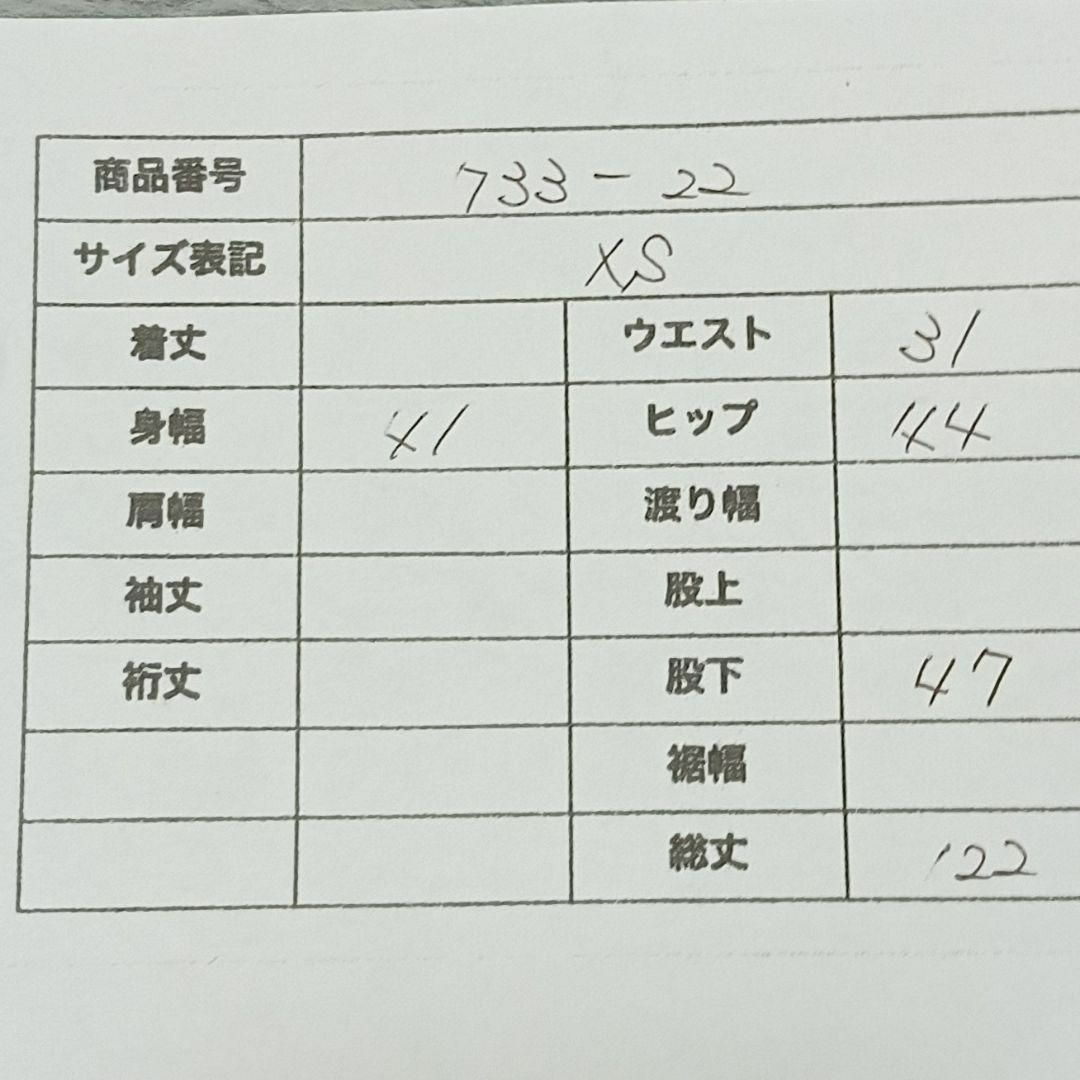 商品番号 733-22
サイズ表記 XS
着丈 ウエスト 31
身幅 41 ヒップ 44
肩幅 渡り幅
袖丈 股上
裄丈 股下 47
裾幅
総丈 122